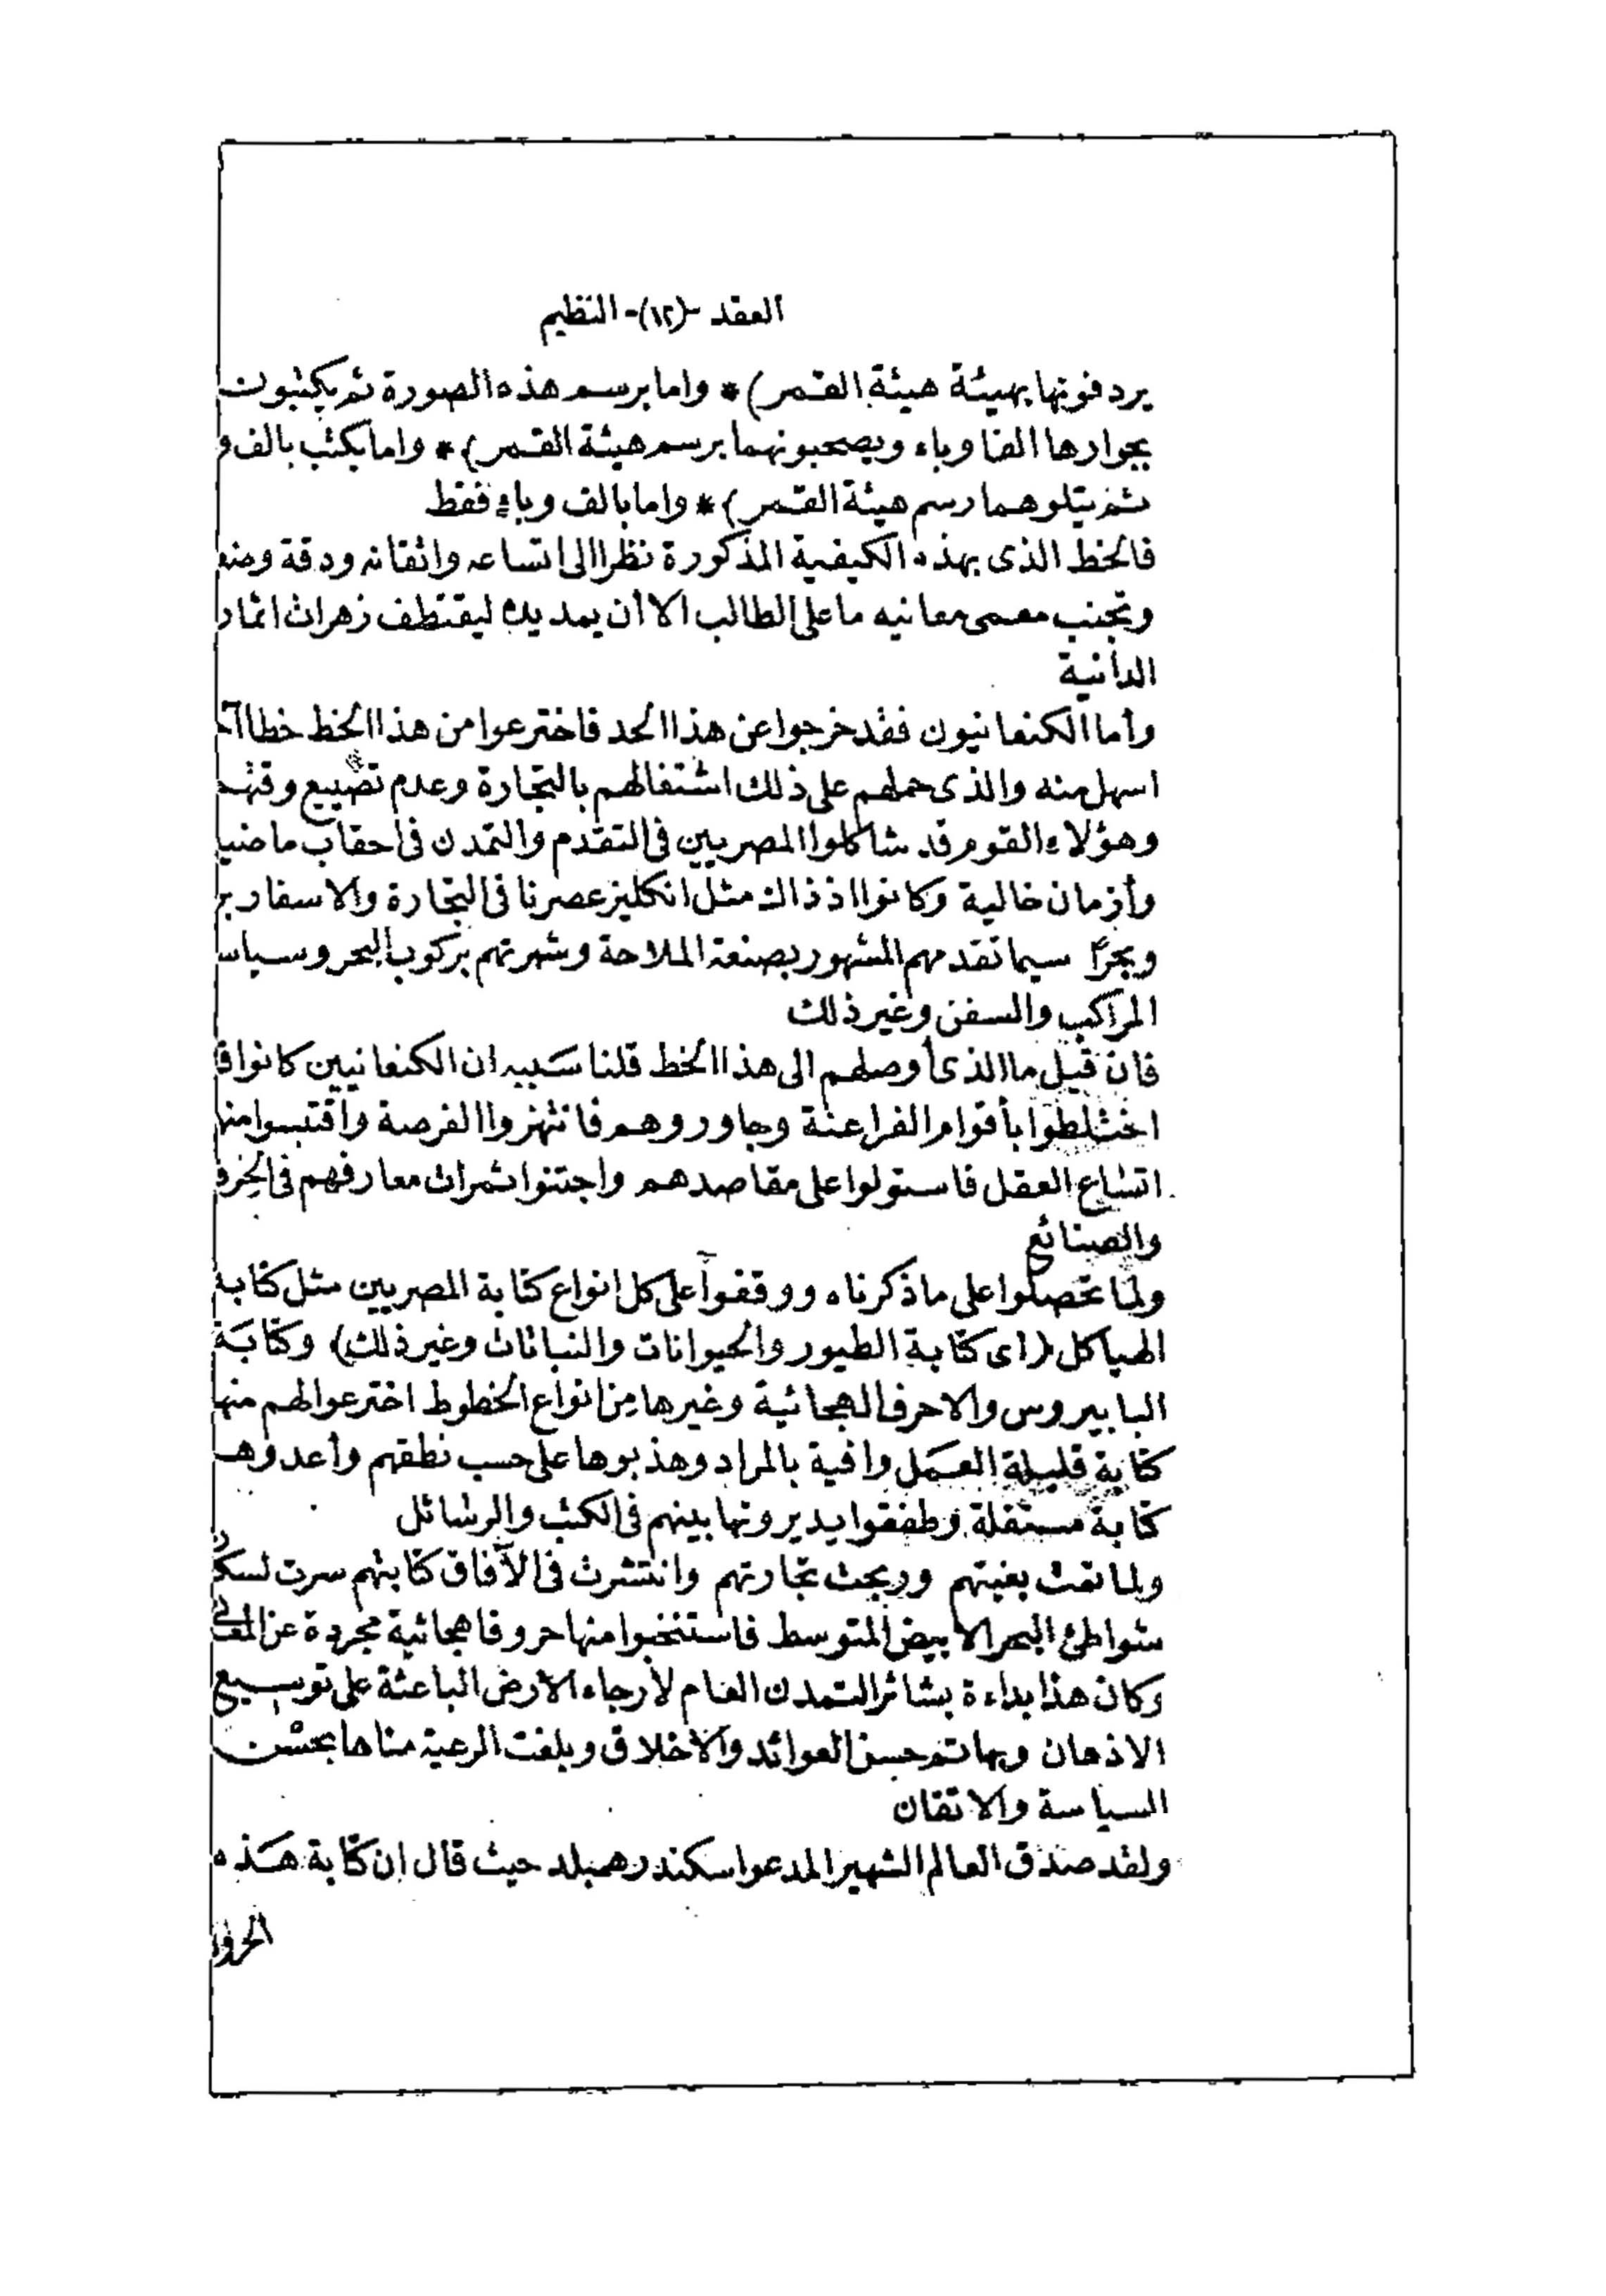 العقد -(١٢)- النظيم
يردفونها بهيئة هيئة القمر) * واما برسم هذه الصورة ثم يكتبون
بجوارها الفا وباء ويصحبونهما برسم هيئة القمر) * واما بكتب بالف و
ثم يتلوهما رسم هيئة القمر) * واما بالف وباء فقط
فالخط الذى بهذه الكيفية المذكورة نظرا الى اتساعه واتقانه ودقة وضع
وتجنب معمى معانيه ما على الطالب الا أن يمد يده ليقتطف زهرات اثمار
الدانية
وأما الكنعانيون فقد خرجوا عن هذا الحد فاخترعوا من هذا الخط خطا آخ
اسهل منه والذى حملهم على ذلك اشتغالهم بالتجارة وعدم تضييع وقته
وهؤلاء القوم قد شاكلوا المصريين فى التقدم والتمدن فى احقاب ماضيـ
وأزمان خالية وكانوا اذ ذاك مثل انكليز عصرنا فى التجارة والاسفار بر
وبحرًا سيما تقدمهم المشهور بصنعة الملاحة وشهرتهم بركوب البحر وسياسـ
المراكب والسفن وغير ذلك
فان قيل ما الذى أوصلهم الى هذا الخط قلنا سببه ان الكنعانيين كانوا قـ
اختلطوا بأقوام الفراعنة وجاوروهم فانتهزوا الفرصة واقتبسوا منها
اتساع العقل فاستولوا على مقاصدهم واجتنوا ثمرات معارفهم فى الحرف
والصنائع
ولما تحصلوا على ما ذكرناه ووقفوا على كل انواع كتابة المصريين مثل كتابة
الهياكل (اى كتابة الطيور والحيوانات والنباتات وغير ذلك) وكتابة
البابيروس والاحرف الهجائية وغيرها من انواع الخطوط اخترعوا لهم منها
كتابة قليلة العمل وافية بالمراد وهذبوها على حسب نطقهم وأعدوها
كتابة مستقلة وطفقوا يديرونها بينهم فى الكتب والرسائل
ولما تمت بغيتهم وربحت تجارتهم وانتشرت فى الآفاق كتابتهم سرت لسكان
شواطئ البحر الابيض المتوسط فاستنخبوا منها حروفا هجائية مجردة عن المعانى
وكان هذا بداءة بشائر التمدن العام لأرجاء الارض الباعثة على توسيع
الاذهان وبها تم حسن العوائد والاخلاق وبلغت الرعية مناها بحسن
السياسة والاتقان
ولقد صدق العالم الشهير المدعو اسكندر همبلد حيث قال ان كتابة هذه
الحروف